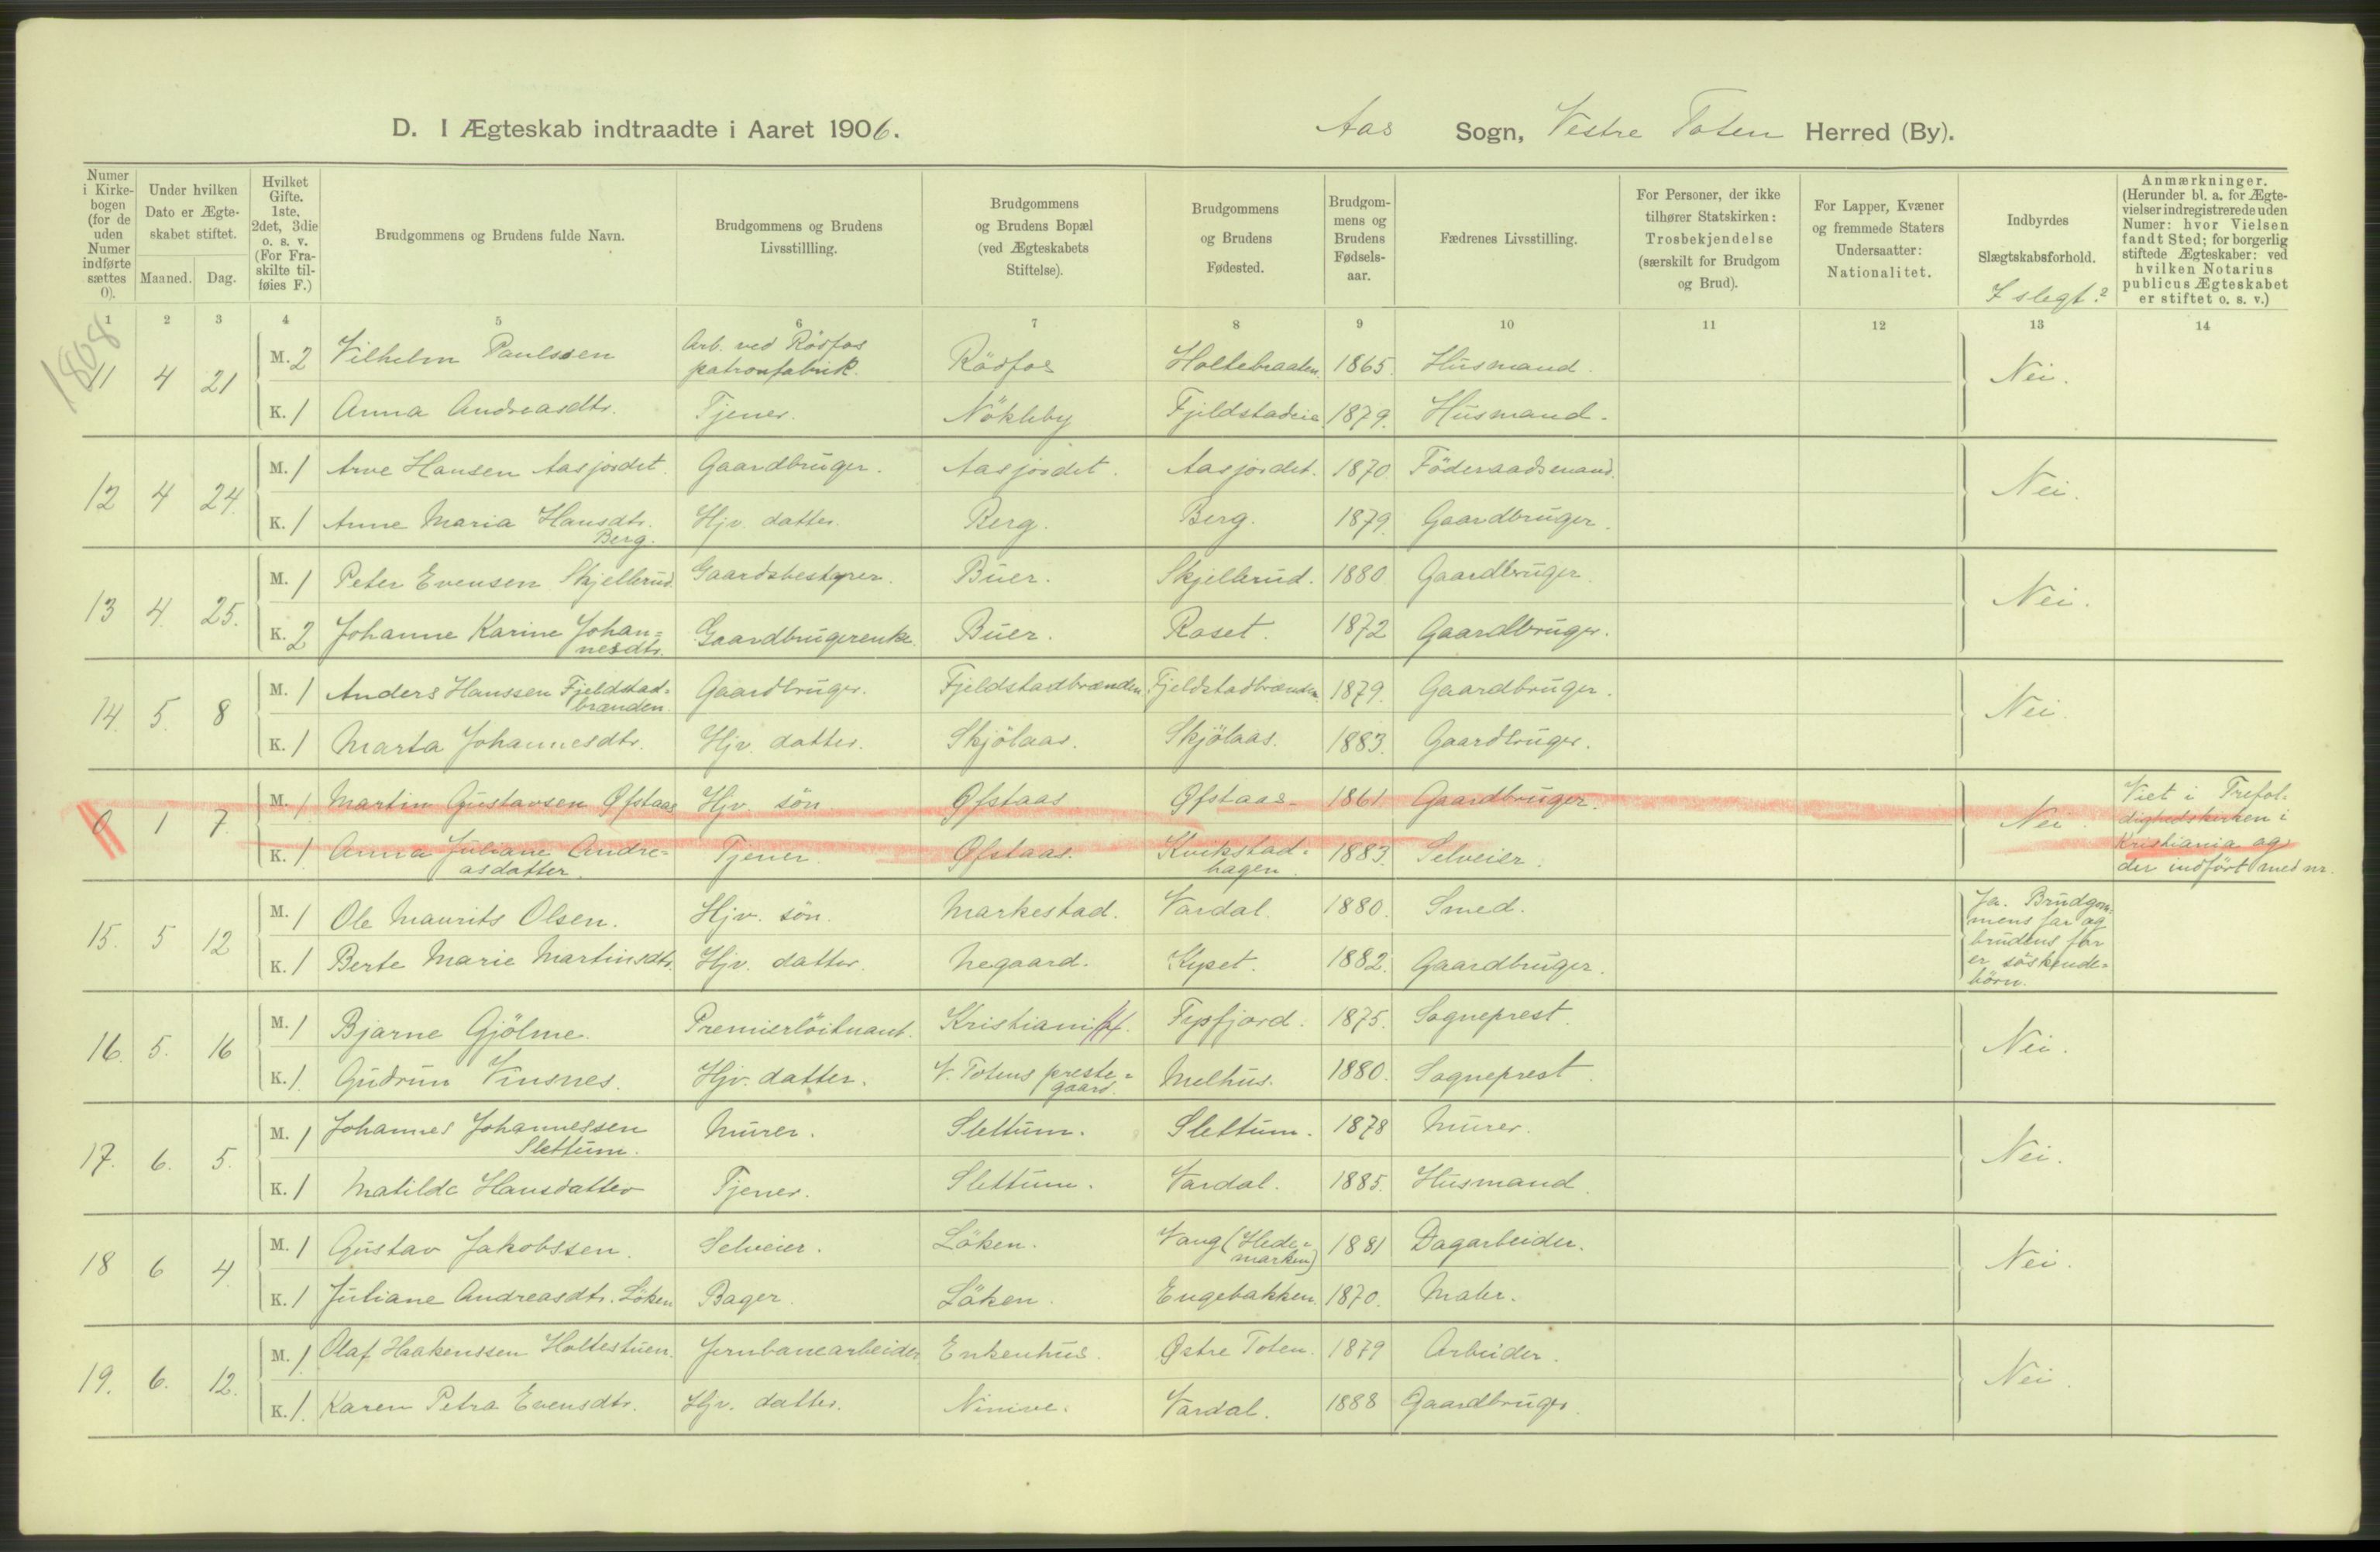 D. I Ægteskab indtraadte i Aaret 1906.
Aas Sogn, Vestre Toten Herred (By).
Numer i Kirke-bogen (for de uden Numer indførte sættes 0).
Under hvilken Dato er Ægte-skabet stiftet.
Maaned. Dag.
Hvilket Gifte. 1ste, 2det, 3die o. s. v. (For Fra-skilte til-føies F.)
Brudgommens og Brudens fulde Navn.
Brudgommens og Brudens Livsstillling.
Brudgommens og Brudens Bopæl (ved Ægteskabets Stiftelse).
Brudgommens og Brudens Fødested.
Brudgom-mens og Brudens Fødsels-aar.
Fædrenes Livsstilling.
For Personer, der ikke tilhører Statskirken: Trosbekjendelse (særskilt for Brudgom og Brud).
For Lapper, Kvæner og fremmede Staters Undersaatter: Nationalitet.
Indbyrdes Slægtskabsforhold.
I slegt?
Anmærkninger. (Herunder bl. a. for Ægte-vielser indregistrerede uden Numer: hvor Vielsen fandt Sted; for borgerlig stiftede Ægteskaber: ved hvilken Notarius publicus Ægteskabet er stiftet o. s. v.)
1 2 3 4 5 6 7 8 9 10 11 12 13 14
1808
11 4 21 M. 2 Vilhelm Paulssen Arb. ved Rödfos patronfabrik. Rödfos Holtebraaten. 1865. Husmand. Nei.
K. 1 Anna Andreasdtr. Tjener. Nökleby Fjeldstadeie 1879. Husmand.
12 4 24. M. 1 Arve Hansen Aasjordet. Gaardbruger. Aasjordet. Aasjordet. 1870. Föderaadsmand. Nei.
K. 1 Anne Maria Hansdtr. Berg. Hjv. datter. Berg. Berg. 1879. Gaardbruger.
13 4. 25. M. 1 Peter Evensen Skjellerud Gaardsbestyrer. Buer. Skjellerud. 1880 Gaardbruger Nei.
K. 2 Johanne Karine Johan=nesdtr. Gaardbrugerenke. Buer. Raset. 1872 Gaardbruger.
14. 5. 8 M. 1 Anders Hanssen Fjeldstad=brænden. Gaardbruger. Fjeldstadbrænden Fjeldstadbrænden 1879. Gaardbruger. Nei.
K. 1 Marta Johannesdtr. Hjv. datter. Skjölaas. Skjölaas. 1883. Gaardbruger.
0 1 7. M. 1 Martin Gustavsen Øfstaas Hjv. sön Øfstaas Øfstaas. 1861 Gaardbruger. Nei. Viet i Trefol=dighedskirken i Kristiania og der indført med nr.
K. 1 Anna Juliane Andre=asdatter. Tjener. Øfstaas. Kvikstad=hagen. 1883. Selveier.
15. 5 12 M. 1 Ole Maurits Olsen. Hjv. sön. Markestad. Vardal. 1880. Smed. Ja. Brudgom=mens far og brudens far er söskende=börn.
K. 1 Berte Marie Martinsdtr. Hjv. datter. Negaard. Kyset. 1882. Gaardbruger.
16. 5. 16 M. 1 Bjarne Gjölme. Premierlöitnant. Kristiani Fysfjord. 1875. Sogneprest. Nei.
K. 1. Gudrun Vinsnes. Hjv. datter. V. Totens preste=gaard. Melhus. 1880. Sogneprest.
17. 6. 5. M. 1 Johannes Johannessen Slettum. Murer. Slettum. Slettum. 1878 Murer. Nei.
K. 1 Matilde Hansdatter Tjener. Slettum. Vardal. 1885. Husmand.
18 6 4 M. 1 Gustav Jakobssen. Selveier. Löken. Vang (Hede=marken) 1881 Dagarbeider. Nei.
K. 1 Juliane Andreasdtr. Löken Bager. Löken. Engebakken. 1870. Maler.
19. 6. 12. M. 1. Olaf Haakenssen Holtestuen. Jernbanearbeider Enkenhus. Østre Toten. 1879 Arbeider. Nei.
K. 1. Karen Petra Evensdtr. Hjv. datter. Ninive. Vardal. 1888 Gaardbruger.